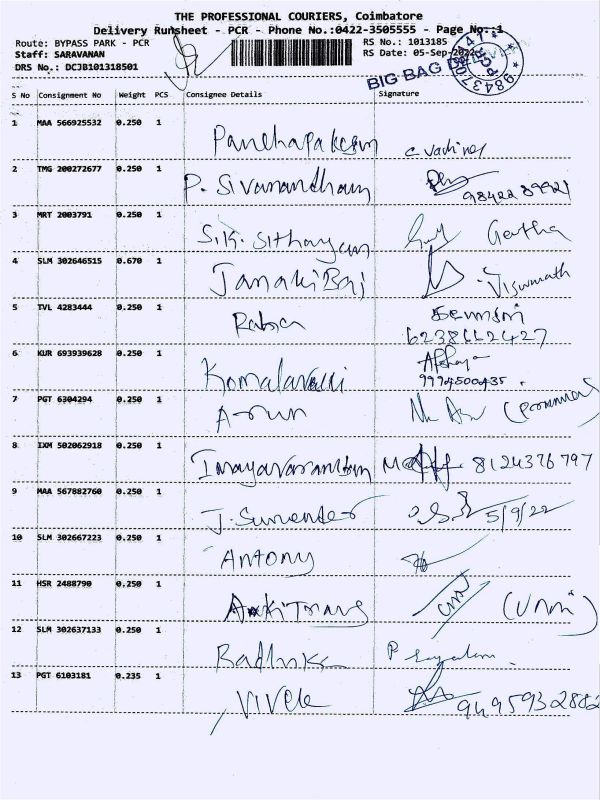 THE PROFESSIONAL COURIERS, Coimbatore
Delivery Runsheet - PCR - Phone No.:0422-3505555 - Page No.:1
Route: BYPASS PARK - PCR RS No.: 1013185
Staff: SARAVANAN RS Date: 05-Sep-2022
DRS No.: DCJB101318501
BIG BAG
S No Consignment No Weight PCS Consignee Details Signature
1 MAA 566925532 0.250 1
2 TMG 200272677 0.250 1 P. Sivanandham
9842289921
3 MRT 2003791 0.250 1 Geetha
4 SLM 302646515 0.670 1 Janaki Bai Viswanath
5 TVL 4283444 0.250 1 Rabia
6238662427
6 KUR 693939628 0.250 1 Komalavalli
9994500435
7 PGT 6304294 0.250 1 Arun
8 IXM 502062918 0.250 1 8124376797
9 MAA 567882760 0.250 1 J. Surender 5/9/22
10 SLM 302667223 0.250 1 Antony
11 HSR 2488790 0.250 1 (Unni)
12 SLM 302637133 0.250 1 Radhika
13 PGT 6103181 0.235 1 Vivek
9495932882